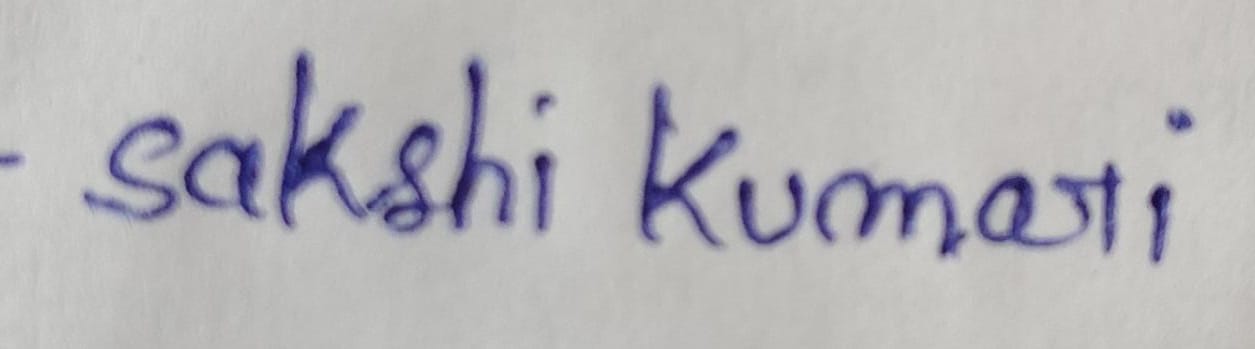 - Sakshi Kumari